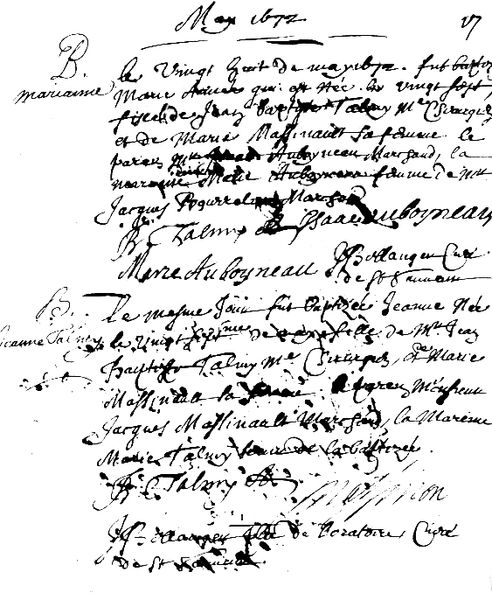 May 1672 17
B. le vingt huit de may 1672. fut baptizé
marianne Marie Anne qui est née le vingt sept
fille de Jean Baptiste Talmy Me Chirurgien
et de Marie Massinault sa femme le
parein Auboyneau Marchand, la
maraine Marie Auboyneau femme de Mre
Jacques Marchand
JB Talmy Isaac Auboyneau
Marie Auboyneau JBollanger Curé
de St Sauveur
B. Le mesme Jour fut baptizée Jeanne Née
Jeanne Talmy le vingt sept fille de Mre Jean
Baptiste Talmy Me Chirurgien, et de Marie
Massinault sa femme le parein Monsieur
Jacques Massinault Marchand, la Mareine
Marie Talmy soeur de la baptizée.
JB Talmy
JBollanger de l'oratoire, Curé
de St Sauveur.